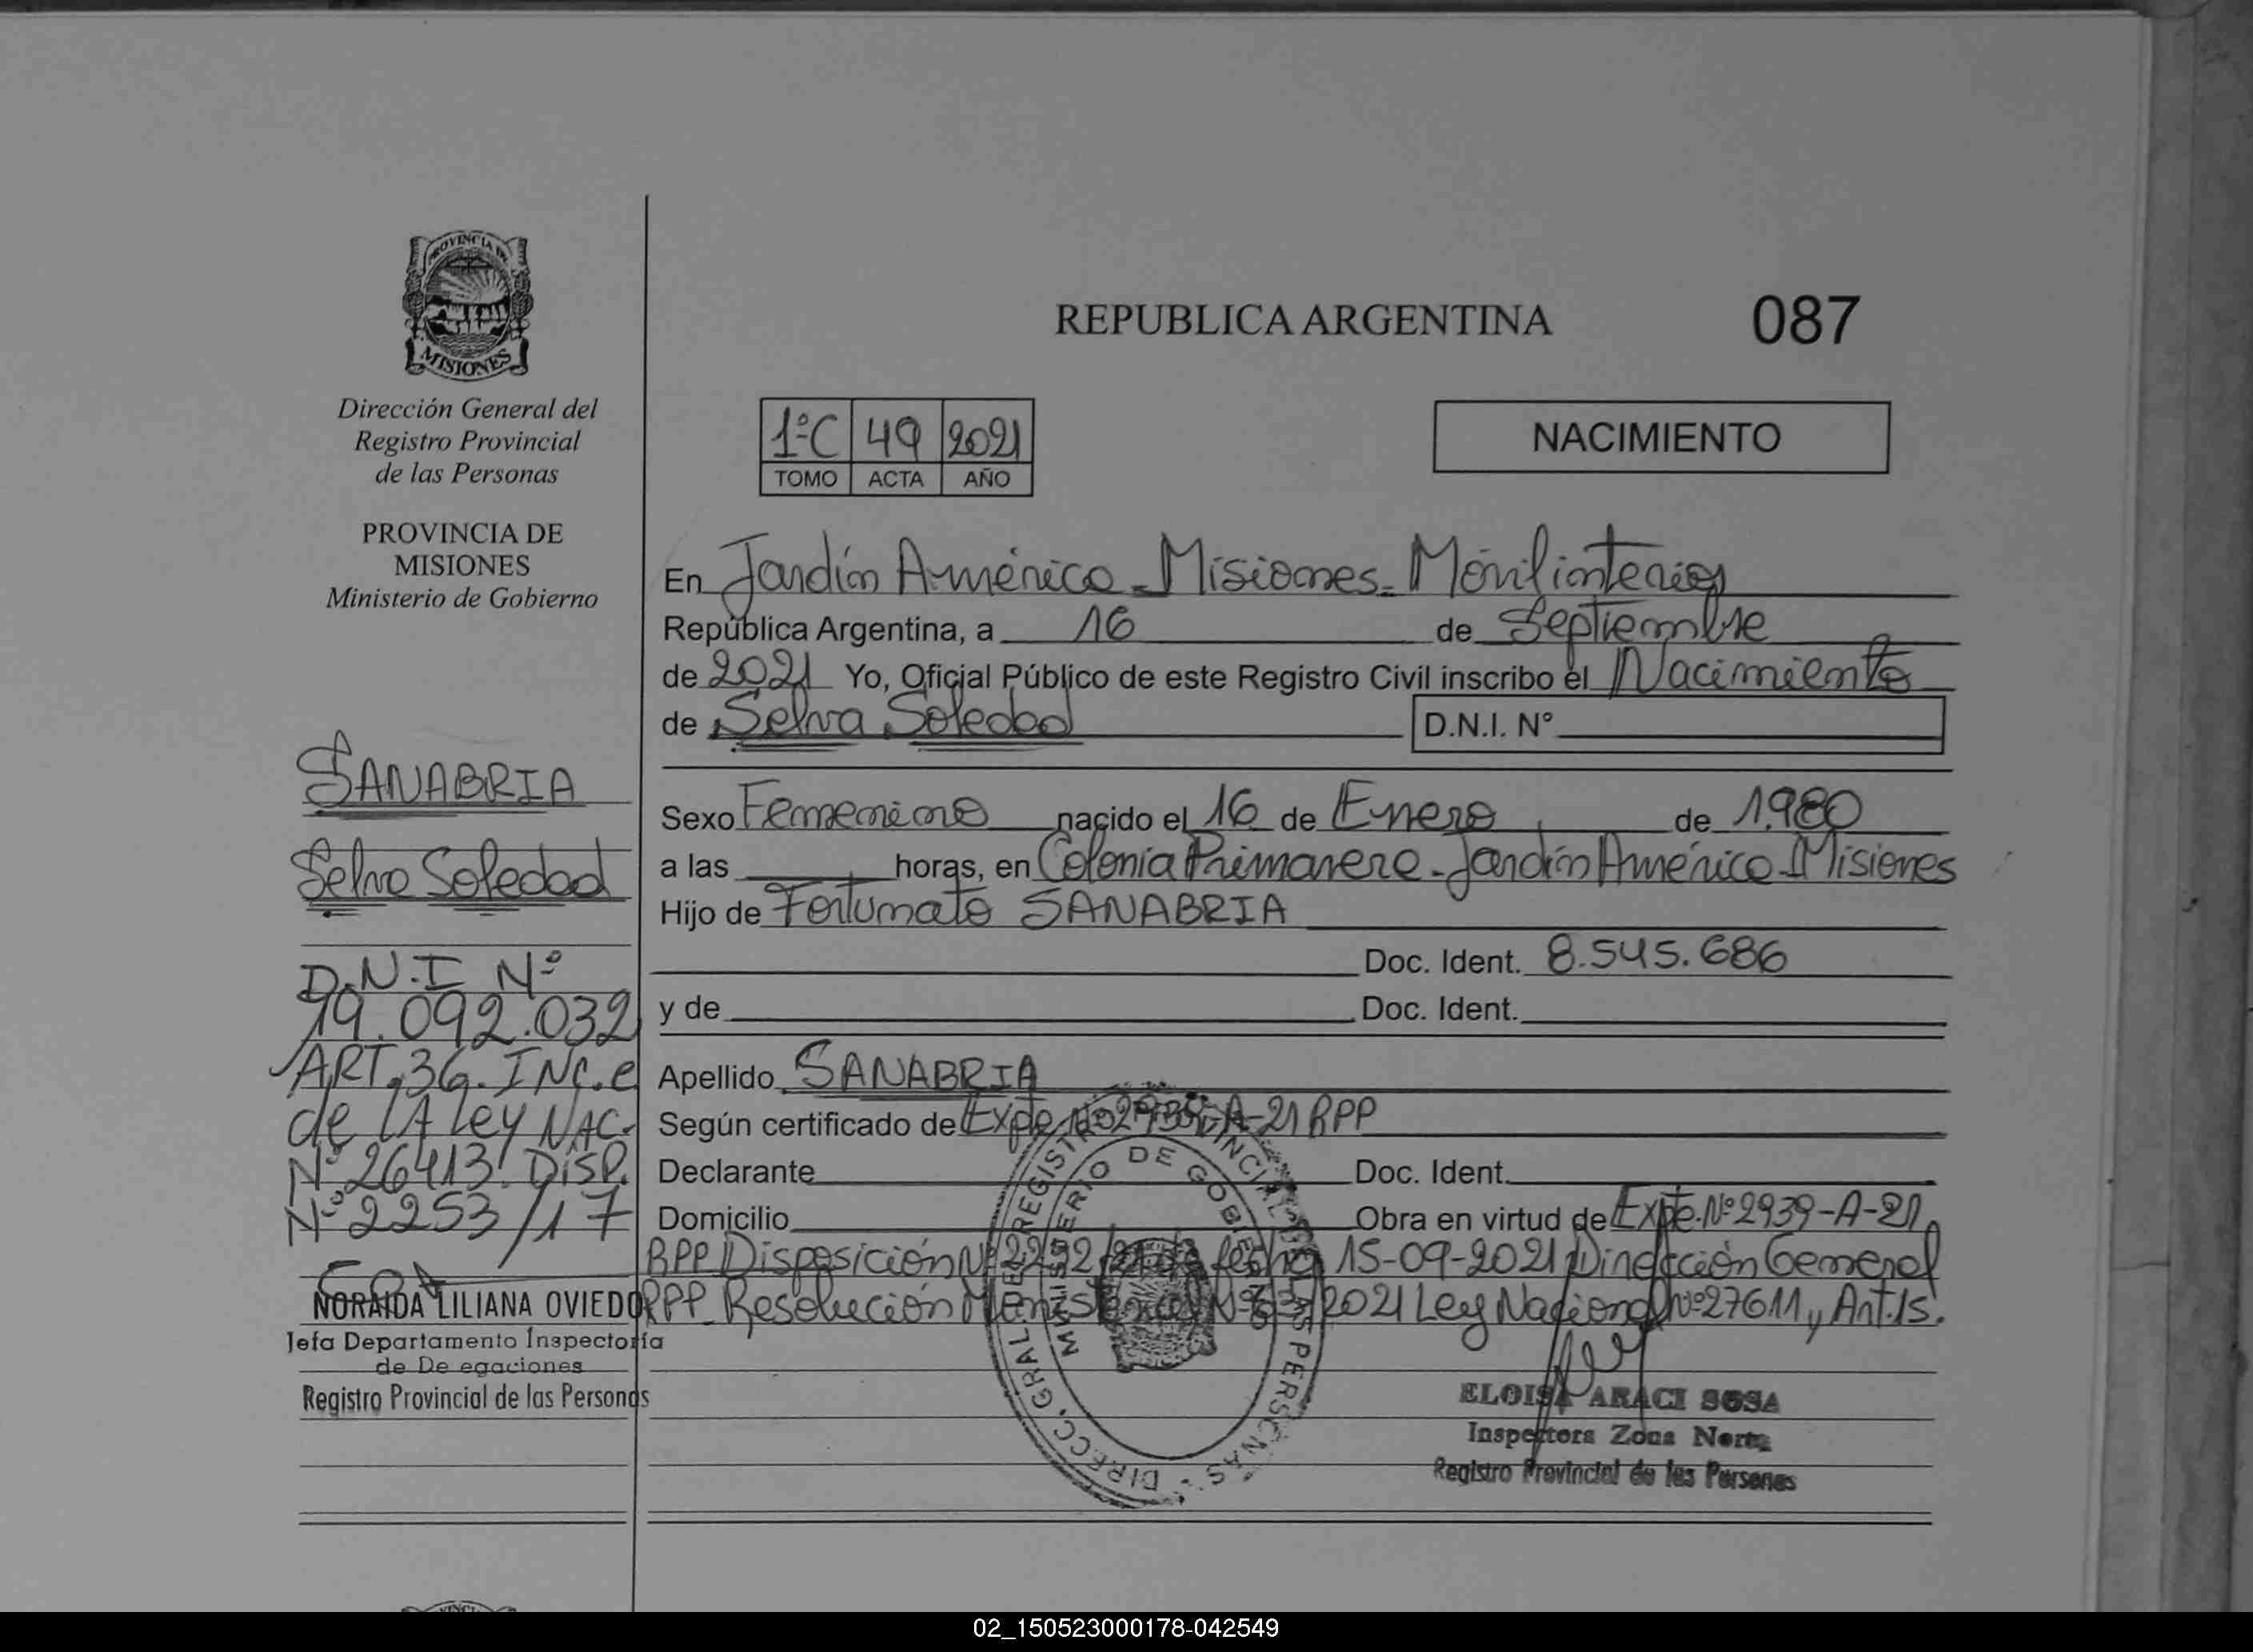 PROVINCIA DE
MISIONES
Dirección General del
Registro Provincial
de las Personas
PROVINCIA DE
MISIONES
Ministerio de Gobierno
SANABRIA
Selva Soledad
D.N.I Nº
19.092.032
ART. 36. INC. e
de LA Ley NAC.
Nº 26413. DISP.
Nº 2253/17
NORAIDA LILIANA OVIEDO
Jefa Departamento Inspectoría
de De egaciones
Registro Provincial de las Personas
REPUBLICA ARGENTINA
087
1ºC 49 2021
TOMO ACTA AÑO
NACIMIENTO
En Jardín América - Misiones - Móvil interior
República Argentina, a 16 de Septiembre
de 2021 Yo, Oficial Público de este Registro Civil inscribo el Nacimiento
de Selva Soledad D.N.I. N°
Sexo Femenino nacido el 16 de Enero de 1.980
a las horas, en Colonia Primavera - Jardín América - Misiones
Hijo de Fortunato SANABRIA
Doc. Ident. 8.545.686
y de Doc. Ident.
Apellido SANABRIA
Según certificado de Expte Nº 2939-A-21 RPP
Declarante Doc. Ident.
Domicilio Obra en virtud de Expte. Nº 2939-A-21
RPP Disposición Nº 2292/21 de fecha 15-09-2021 Dirección General
RPP - Resolución Ministerial Nº /2021 Ley Nacional Nº 27611 y Art. 15.
DIRECC. GRAL. DEL REGISTRO PROVINCIAL DE LAS PERSONAS
MINISTERIO DE GOBIERNO
ELOISA ARACI SOSA
Inspectora Zona Norte
Registro Provincial de las Personas
02_150523000178-042549